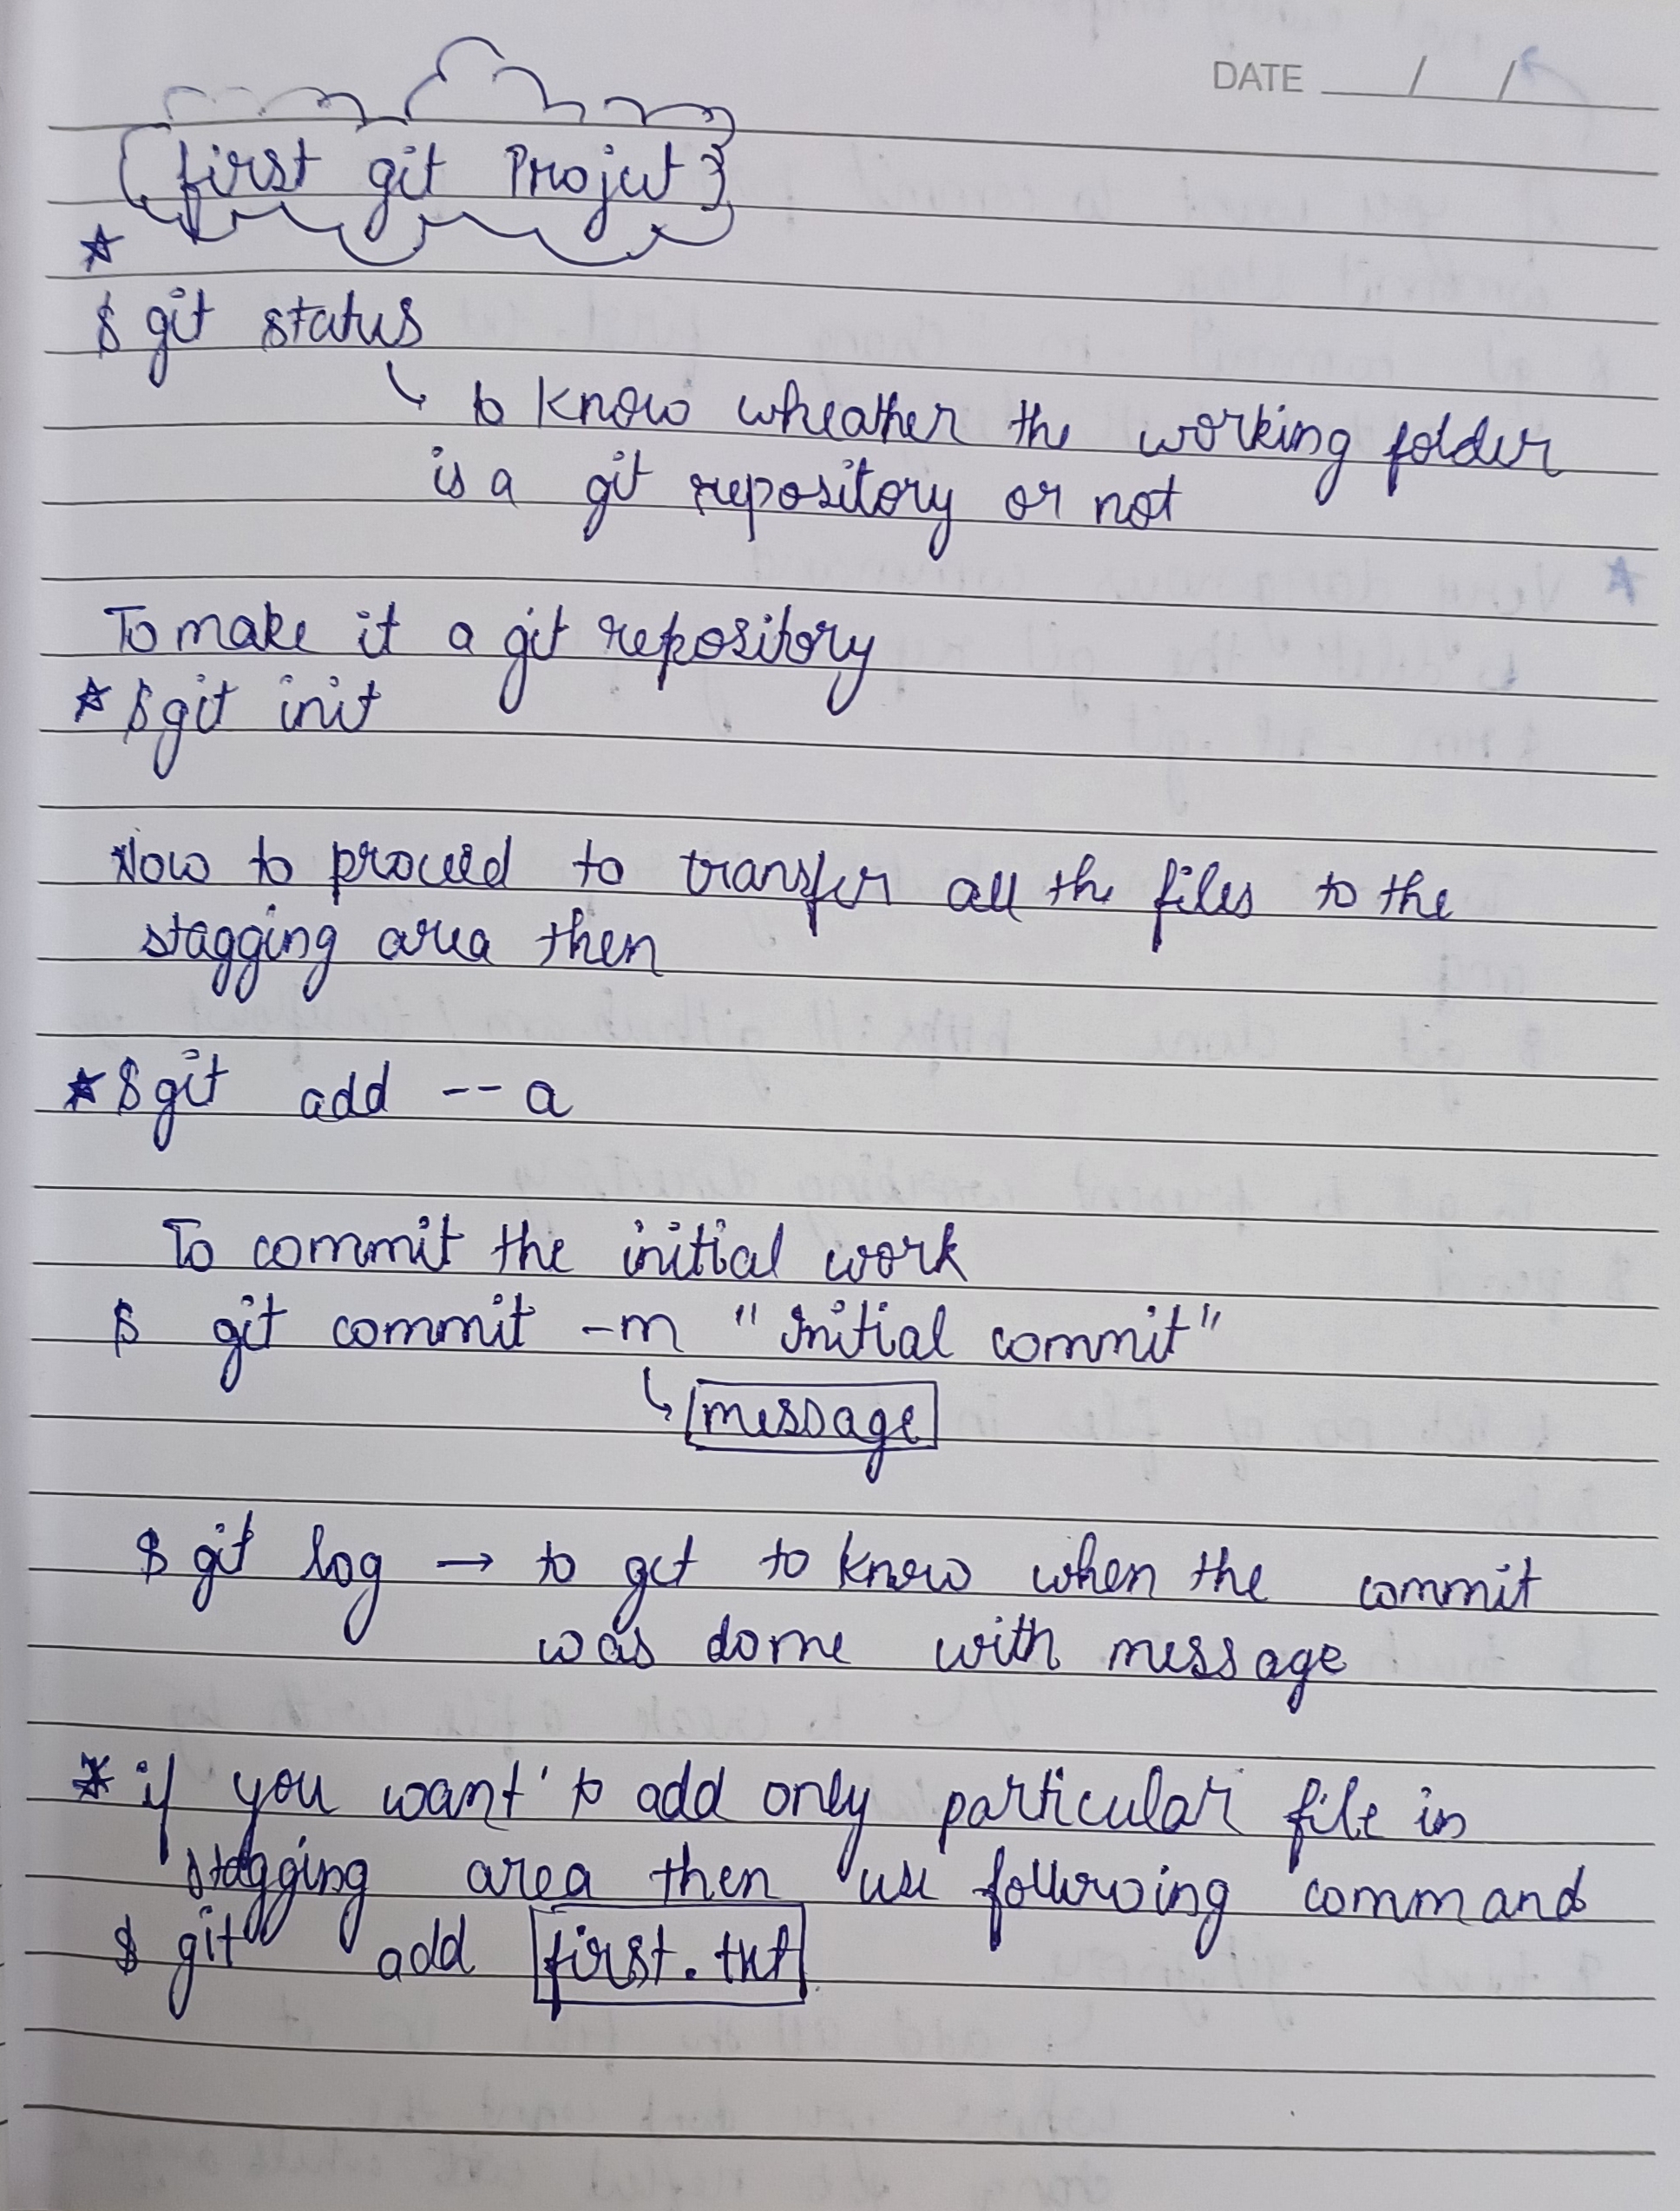 DATE / /
{first git Project}
★
$ git status
↳ to know wheather the working folder
is a git repository or not
To make it a git repository
★ $ git init
Now to proceed to transfer all the files to the
stagging area then
★ $ git add -- a
To commit the initial work
$ git commit -m "Initial commit"
↳ message
$ git log → to get to know when the commit
was done with message
* if you want to add only particular file in
stagging area then use following command
$ git add first.txt